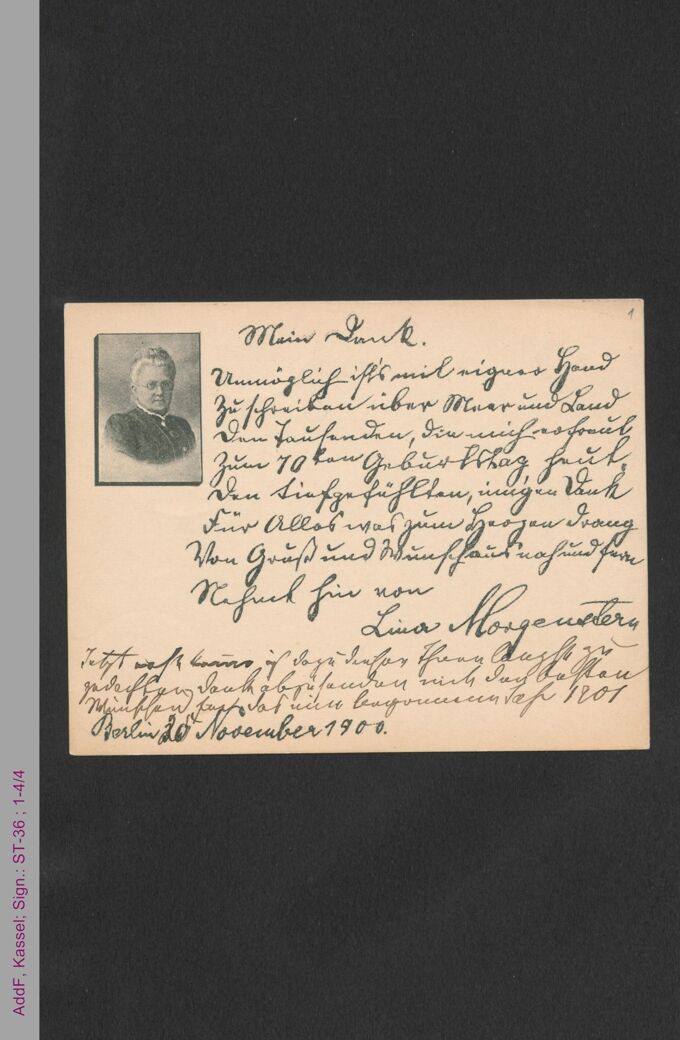 1
Mein Dank.
Unmöglich ist's mit eigner Hand
Zu schreiben über Meer und Land
Den Tausenden, die mich erfreut
Zum 70ten Geburtstag heut.
Den tiefgefühlten, innigen Dank
Für Alles was zum Herzen drang
Von Gruß und Wunsch aus nah und fern
Nehmt hin von
Lina Morgenstern
Jetzt erst komme ich dazu diesen Ihnen längst zu
gedachten Dank abzusenden mit den besten
Wünschen für das nun begonnene Jahr 1901
Berlin 25 November 1900.
AddF, Kassel; Sign.: ST-36 ; 1-4/4